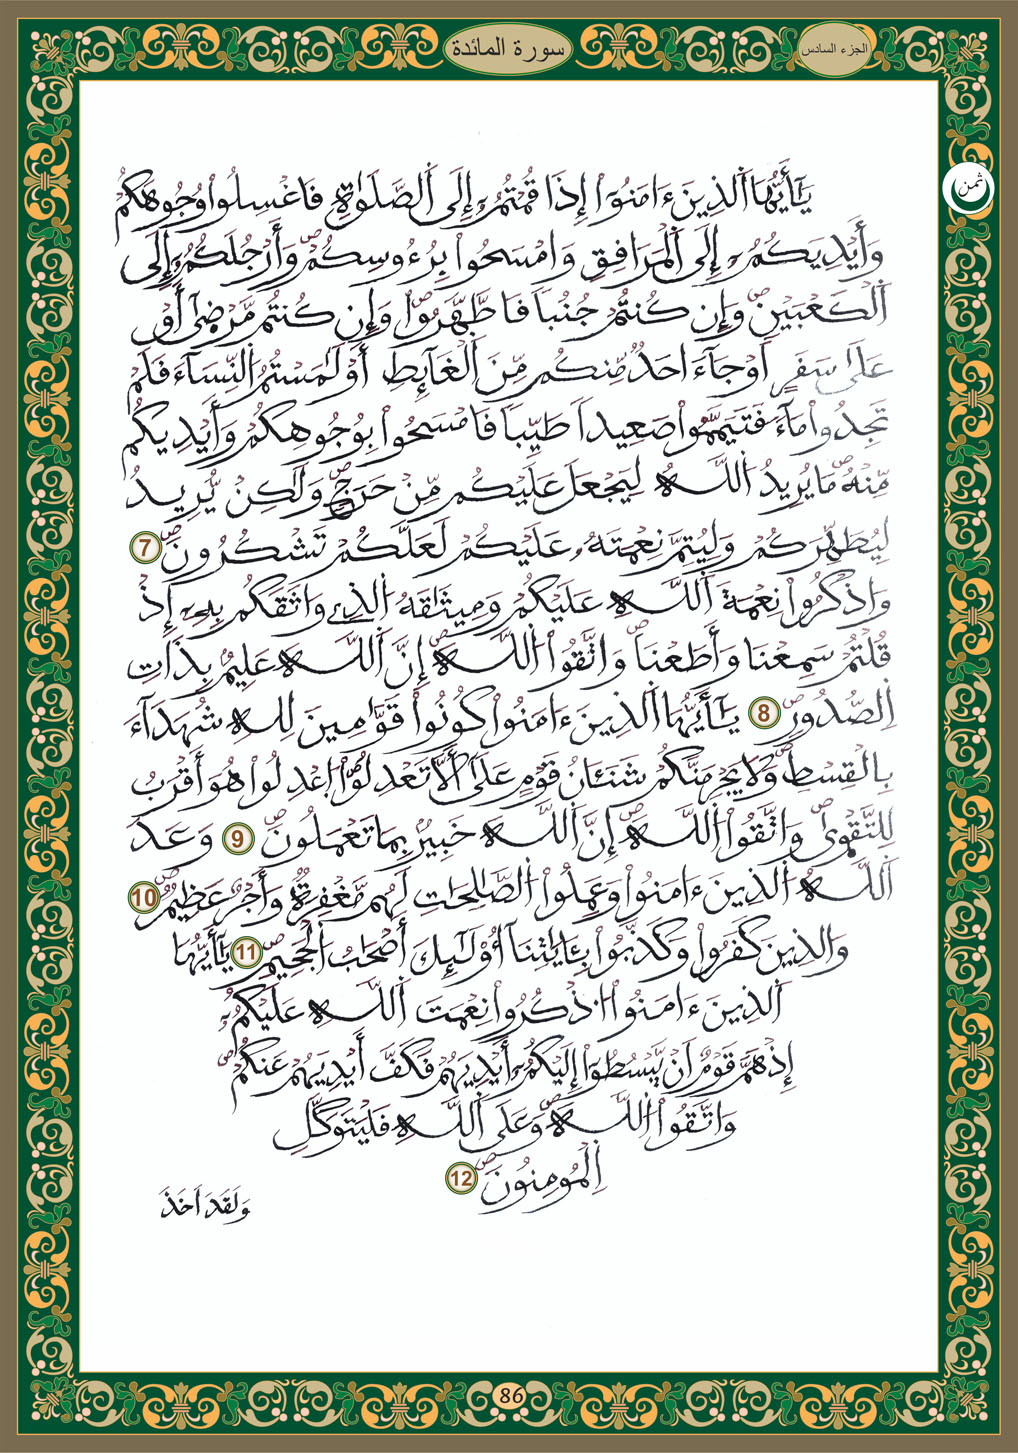 سورة المائدة
الجزء السادس
ثمن
يَٰٓأَيُّهَا اَ۬لذِينَ ءَامَنُوٓاْ إِذَا قُمْتُمُۥٓ إِلَى اَ۬لصَّلَوٰةِ فَاغْسِلُواْ وُجُوهَكُمْ
وَأَيْدِيَكُمُۥٓ إِلَى اَ۬لْمَرَافِقِ وَامْسَحُواْ بِرُءُوسِكُمْ وَأَرْجُلَكُمُۥٓ إِلَى
اَ۬لْكَعْبَيْنِ وَإِن كُنتُمْ جُنُباٗ فَاطَّهَّرُواْ وَإِن كُنتُم مَّرْضَىٰٓ أَوْ
عَلَىٰ سَفَرٍ أَوْ جَآءَ احَدٞ مِّنكُم مِّنَ اَ۬لْغَآئِطِ أَوْ لَٰمَسْتُمُ اُ۬لنِّسَآءَ فَلَمْ
تَجِدُواْ مَآءٗ فَتَيَمَّمُواْ صَعِيداٗ طَيِّباٗ فَامْسَحُواْ بِوُجُوهِكُمْ وَأَيْدِيكُم
مِّنْهُ مَا يُرِيدُ اُ۬للَّهُ لِيَجْعَلَ عَلَيْكُم مِّنْ حَرَجٖ وَلَٰكِنْ يُّرِيدُ
لِيُطَهِّرَكُمْ وَلِيُتِمَّ نِعْمَتَهُۥ عَلَيْكُمْ لَعَلَّكُمْ تَشْكُرُونَ 7
وَاذْكُرُواْ نِعْمَةَ اَ۬للَّهِ عَلَيْكُمْ وَمِيثَٰقَهُ اُ۬لذِے وَاثَقَكُم بِهِۦٓ إِذْ
قُلْتُمْ سَمِعْنَا وَأَطَعْنَا وَاتَّقُواْ اُ۬للَّهَ إِنَّ اَ۬للَّهَ عَلِيمُۢ بِذَاتِ
اِ۬لصُّدُورِ 8 يَٰٓأَيُّهَا اَ۬لذِينَ ءَامَنُواْ كُونُواْ قَوَّٰمِينَ لِلهِ شُهَدَآءَ
بِالْقِسْطِ وَلَا يَجْرِمَنَّكُمْ شَنَـَٔانُ قَوْمٍ عَلَىٰٓ أَلَّا تَعْدِلُواْ اُ۪عْدِلُواْ هُوَ أَقْرَبُ
لِلتَّقْوَىٰ وَاتَّقُواْ اُ۬للَّهَ إِنَّ اَ۬للَّهَ خَبِيرُۢ بِمَا تَعْمَلُونَ 9 وَعَدَ
اَ۬للَّهُ اُ۬لذِينَ ءَامَنُواْ وَعَمِلُواْ اُ۬لصَّٰلِحَٰتِ لَهُم مَّغْفِرَةٞ وَأَجْرٌ عَظِيمٞ 10
وَالذِينَ كَفَرُواْ وَكَذَّبُواْ بِـَٔايَٰتِنَآ أُوْلَٰٓئِكَ أَصْحَٰبُ اُ۬لْجَحِيمِ 11 يَٰٓأَيُّهَا
اَ۬لذِينَ ءَامَنُواْ اُ۟ذْكُرُواْ نِعْمَتَ اَ۬للَّهِ عَلَيْكُمُۥٓ
إِذْ هَمَّ قَوْمٌ أَنْ يَّبْسُطُوٓاْ إِلَيْكُمُۥٓ أَيْدِيَهُمْ فَكَفَّ أَيْدِيَهُمْ عَنكُمْ
وَاتَّقُواْ اُ۬للَّهَ وَعَلَى اَ۬للَّهِ فَلْيَتَوَكَّلِ
اِ۬لْمُؤْمِنُونَ 12
وَلَقَدَ اَخَذَ
86